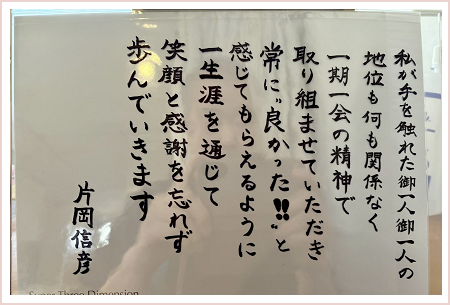 私が手を触れた御一人御一人の
地位も何も関係なく
一期一会の精神で
取り組ませていただき
常に"良かった!!"と
感じてもらえるように
一生涯を通じて
笑顔と感謝を忘れず
歩んでいきます
片岡信彦
Super Three Dimension